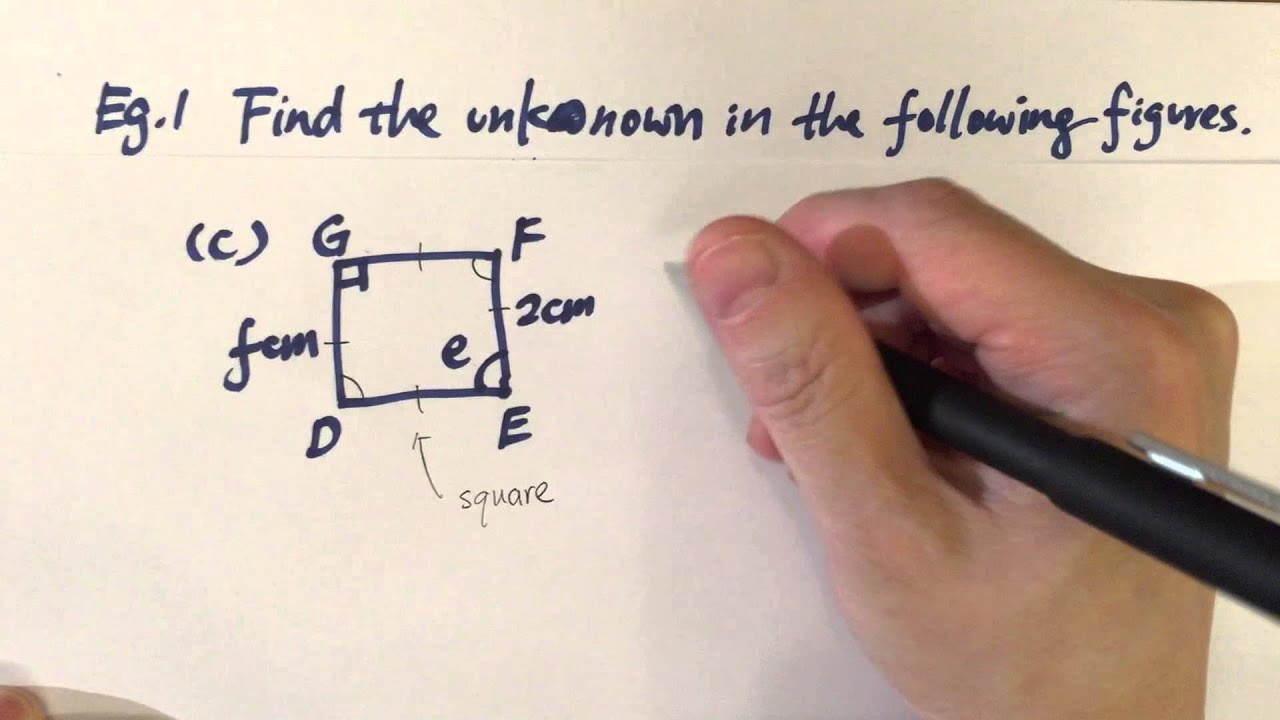 Eg.1 Find the unknown in the following figures.
(c) G F
f cm 2cm
e
D E
square